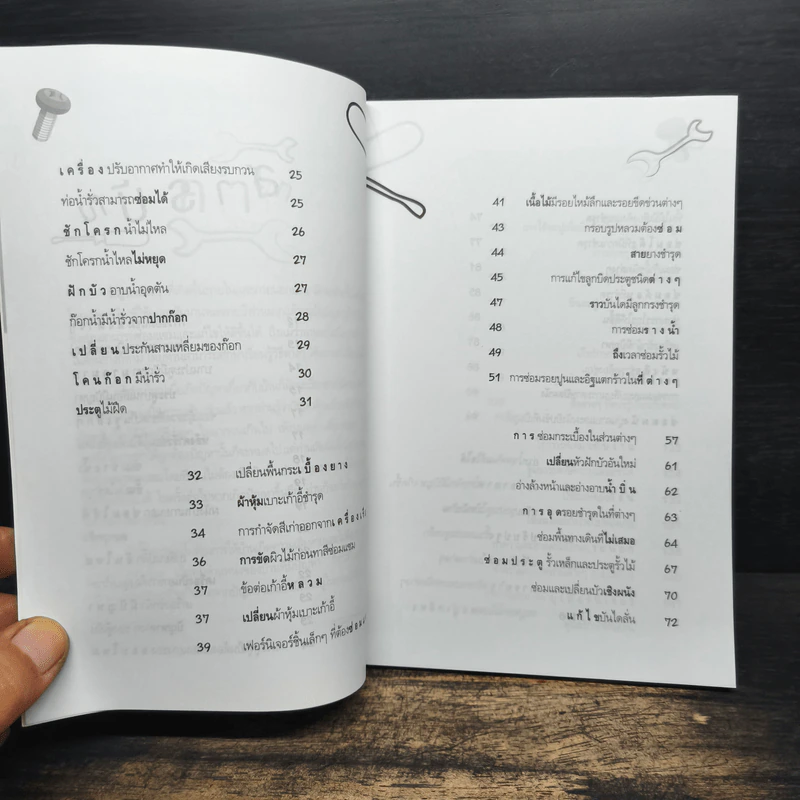 เครื่อง ปรับอากาศทำให้เกิดเสียงรบกวน 25
ท่อน้ำรั่วสามารถซ่อมได้ 25
ชักโครก น้ำไม่ไหล 26
ชักโครกน้ำไหลไม่หยุด 27
ฝักบัว อาบน้ำอุดตัน 27
ก๊อกน้ำมีน้ำรั่วจากปากก๊อก 28
เปลี่ยน ประกันสามเหลี่ยมของก๊อก 29
โคนก๊อก มีน้ำรั่ว 30
ประตูไม้ฝืด 31
32 เปลี่ยนพื้นกระเบื้องยาง
33 ผ้าหุ้มเบาะเก้าอี้ชำรุด
34 การกำจัดสีเก่าออกจากเครื่องเรือ
36 การขัดผิวไม้ก่อนทาสีซ่อมแซม
37 ข้อต่อเก้าอี้หลวม
37 เปลี่ยนผ้าหุ้มเบาะเก้าอี้
39 เฟอร์นิเจอร์ชิ้นเล็กๆ ที่ต้องซ่อม
41 เนื้อไม้มีรอยไหม้ลึกและรอยขีดข่วนต่างๆ
43 กรอบรูปหลวมต้องซ่อม
44 สายยางชำรุด
45 การแก้ไขลูกบิดประตูชนิดต่างๆ
47 ราวบันไดมีลูกกรงชำรุด
48 การซ่อมรางน้ำ
49 ถึงเวลาซ่อมรั้วไม้
51 การซ่อมรอยปูนและอิฐแตกร้าวในที่ต่างๆ
การซ่อมกระเบื้องในส่วนต่างๆ 57
เปลี่ยนหัวฝักบัวอันใหม่ 61
อ่างล้างหน้าและอ่างอาบน้ำบิ่น 62
การอุดรอยชำรุดในที่ต่างๆ 63
ซ่อมพื้นทางเดินที่ไม่เสมอ 64
ซ่อมประตู รั้วเหล็กและประตูรั้วไม้ 67
ซ่อมและเปลี่ยนบัวเชิงผนัง 70
แก้ไขบันไดลั่น 72